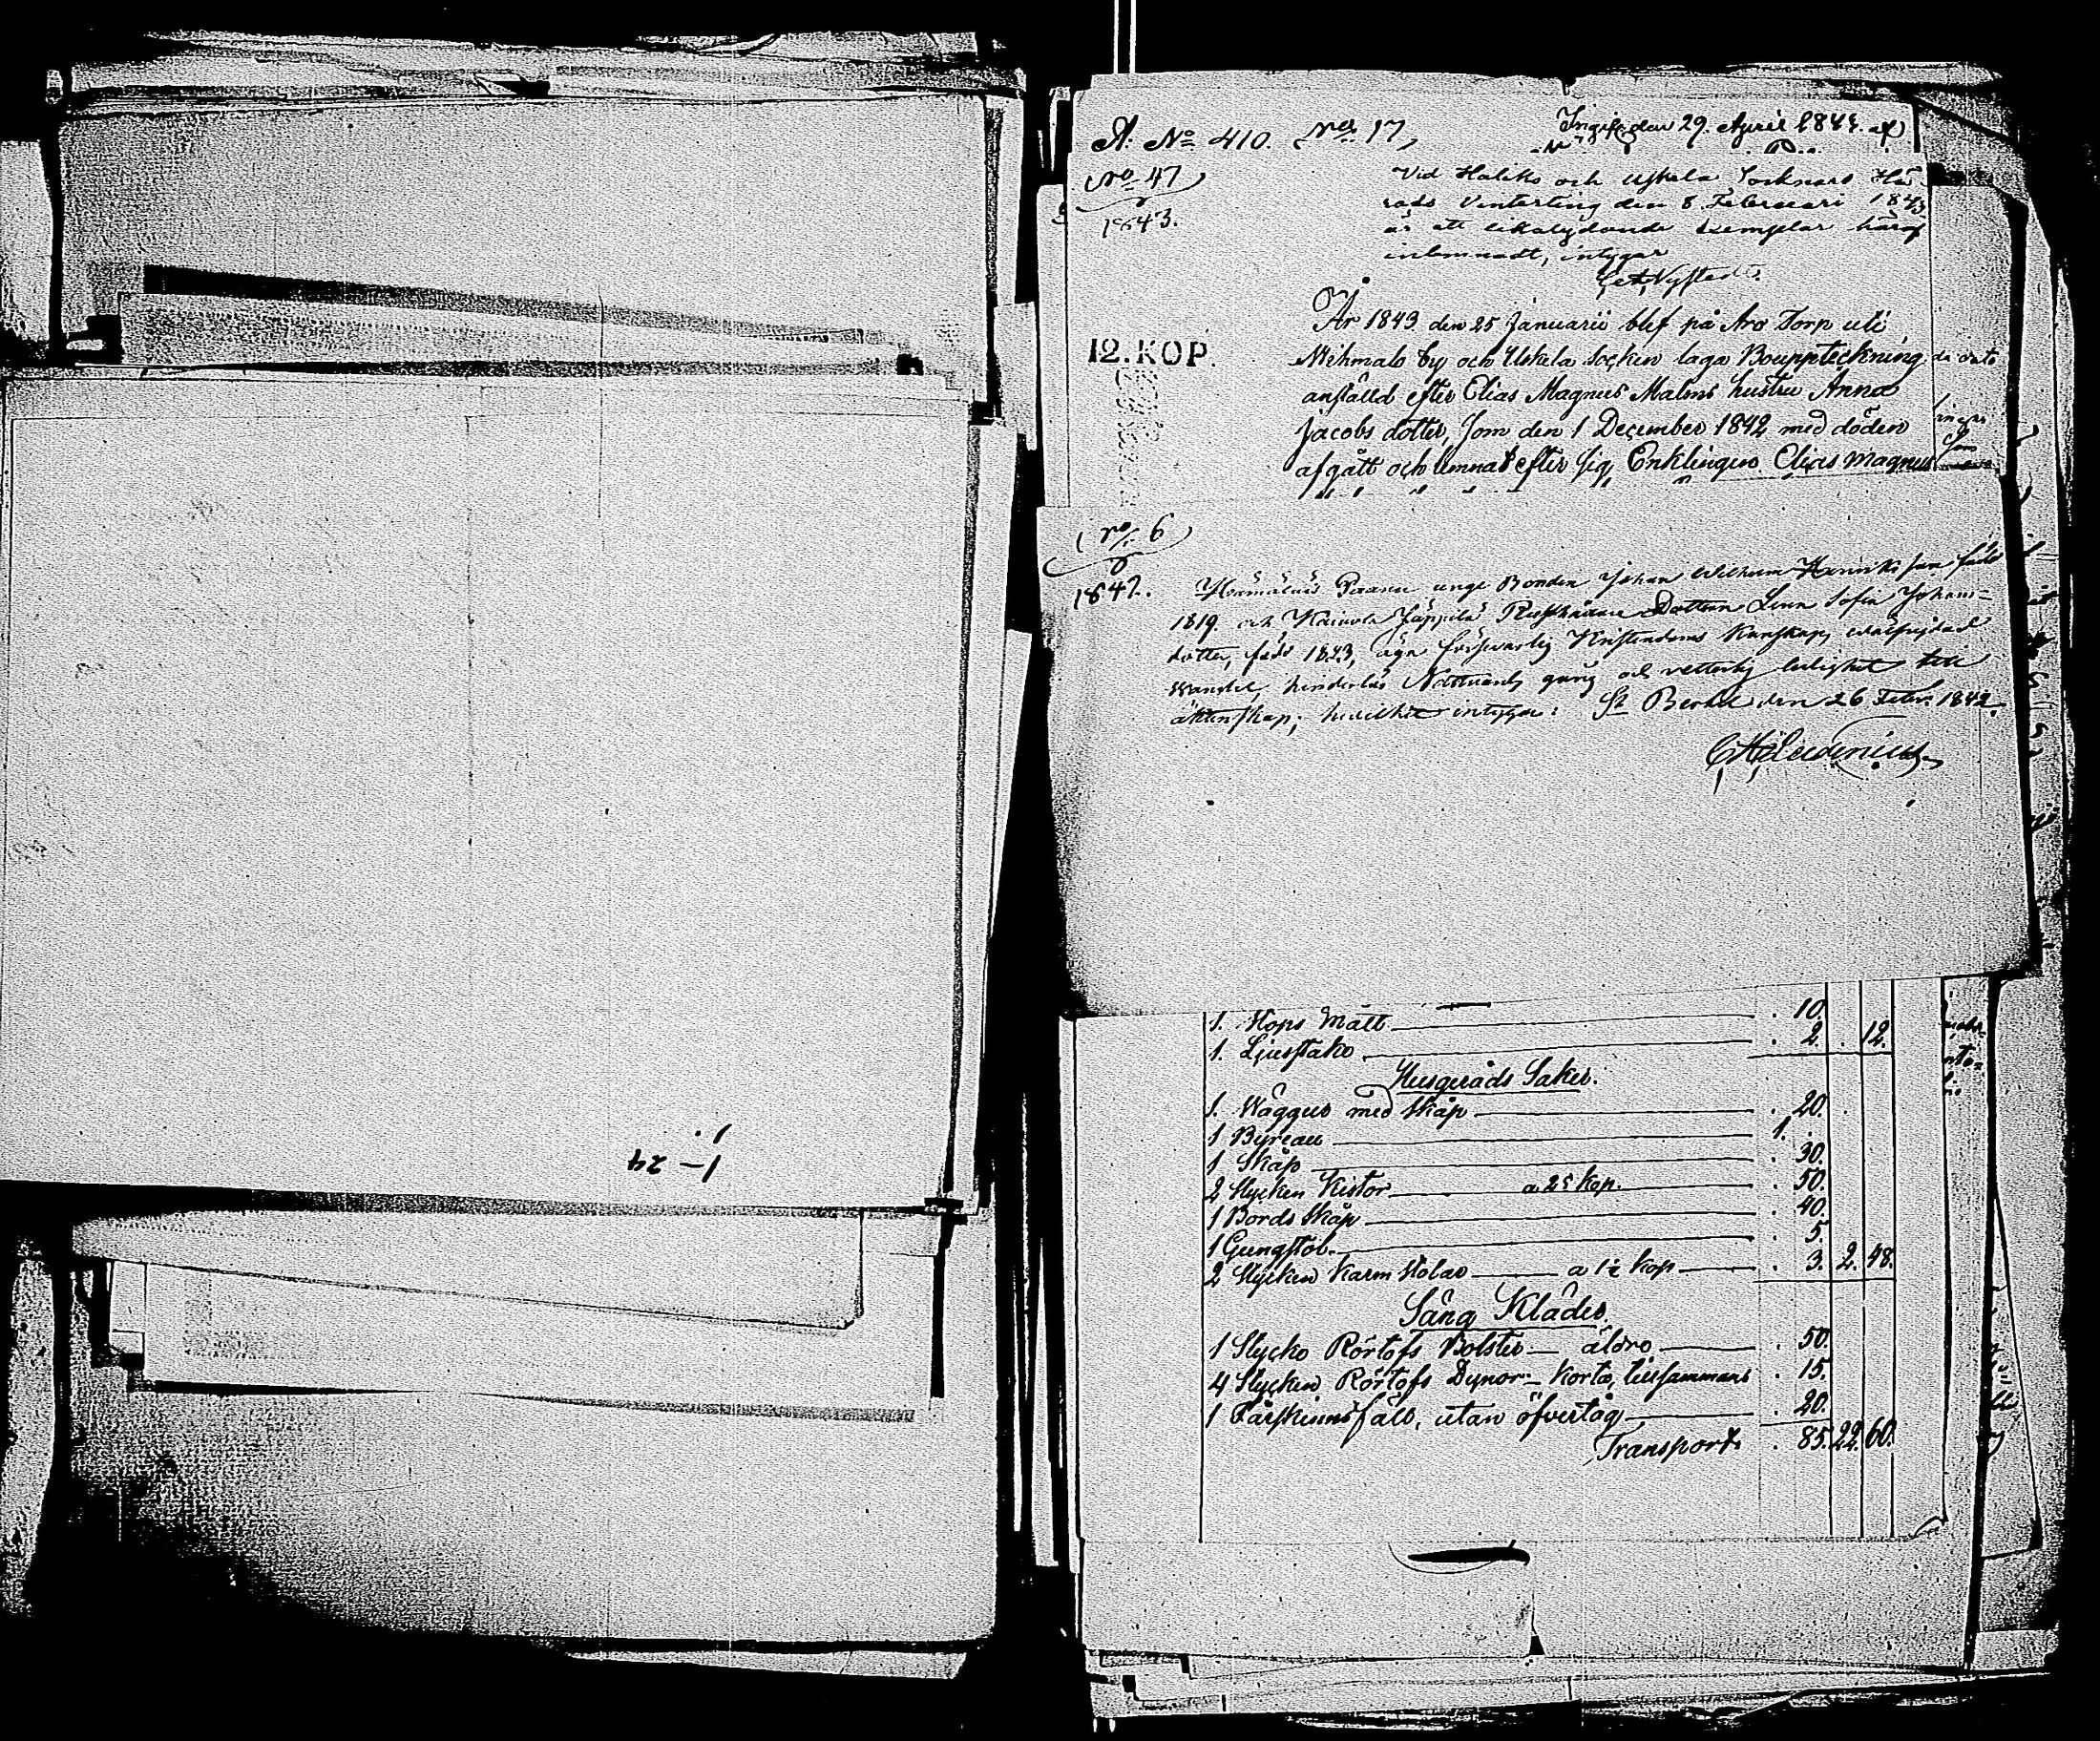 1.
1–24
A. No 410. No 17,
Ingif. den 29. April 1843. af
No 47
1843.
Vid Haliko och Uskela Socknars Hä
rads Vinterting den 8 Februari 1843
är ett likalydande Exemplar häraf
inlemnadt, intygar
År 1843 den 25 Januarii blef på Aro Torp uti
12. KOP.
Mihmala by och Uskela Socken laga Bouppteckning
anstäld efter Elias Magnus Malms hustru Anna
Jacobs dotter, som den 1 December 1842 med döden
afgått och lemnat efter sig Enklingen Elias Magnus
No 6
1842.
unge Bonden Johan Wilhelm Henriksson född
1819 och Dottren Lena Sofia Johans-
dotter, född 1823, äga försvarlig Kristendoms Kunskap, wälfrejdad
Wandel, hinderlös Nattvards gång och retterlig ledighet till
äktenskap; hvilket intygar: St Bertils den 26 Febr. 1842.
1. Kops Mått . 10.
1. Ljusstake . 2. . 12.
Husgeråds Saker.
1. Wäggur med Skåp . 20.
1 Byreau 1. .
1 Skåp . 30.
2 Stycken Kistor a 25 kop. . 50.
1 Bords Skåp . 40.
1 Gungstol . 5.
2 Stycken Karm Stolar a 1½ kop . 3. 2. 48.
Säng Kläder.
1 Stycke Rörtofs Bolster äldre . 50.
4 Stycken Rörtofs Dynor korta, tillsammans . 15.
1 Fårskinnsfäll, utan öfvertåg . 20.
Transport . 85. 22. 60.